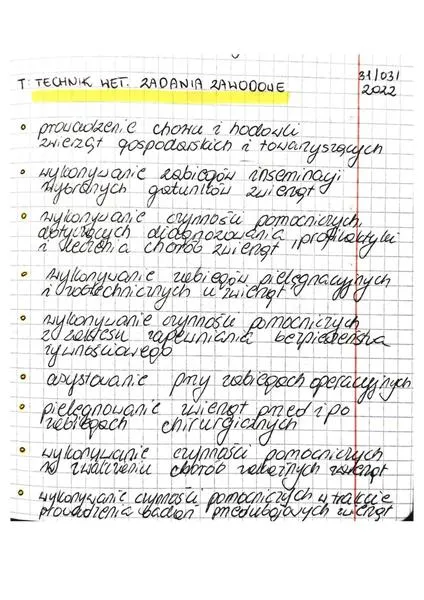 31/03/
T: TECHNIK WET. ZADANIA ZAWODOWE 2022
• prowadzenie chowu i hodowli
zwierząt gospodarskich i towarzyszących
• wykonywanie zabiegów inseminacji
wybranych gatunków zwierząt
• wykonywanie czynności pomocniczych,
dotyczących diagnozowania, profilaktyki
i leczenia chorób zwierząt
• wykonywanie zabiegów pielęgnacyjnych
i zootechnicznych u zwierząt
• wykonywanie czynności pomocniczych
z zakresu zapewniania bezpieczeństwa
żywnościowego
• asystowanie przy zabiegach operacyjnych
• pielęgnowanie zwierząt przed i po
zabiegach chirurgicznych
• wykonywanie czynności pomocniczych
na zwalczaniu chorób zakaźnych zwierząt
• wykonywanie czynności pomocniczych w trakcie
prowadzenia badań przedubojowych zwierząt